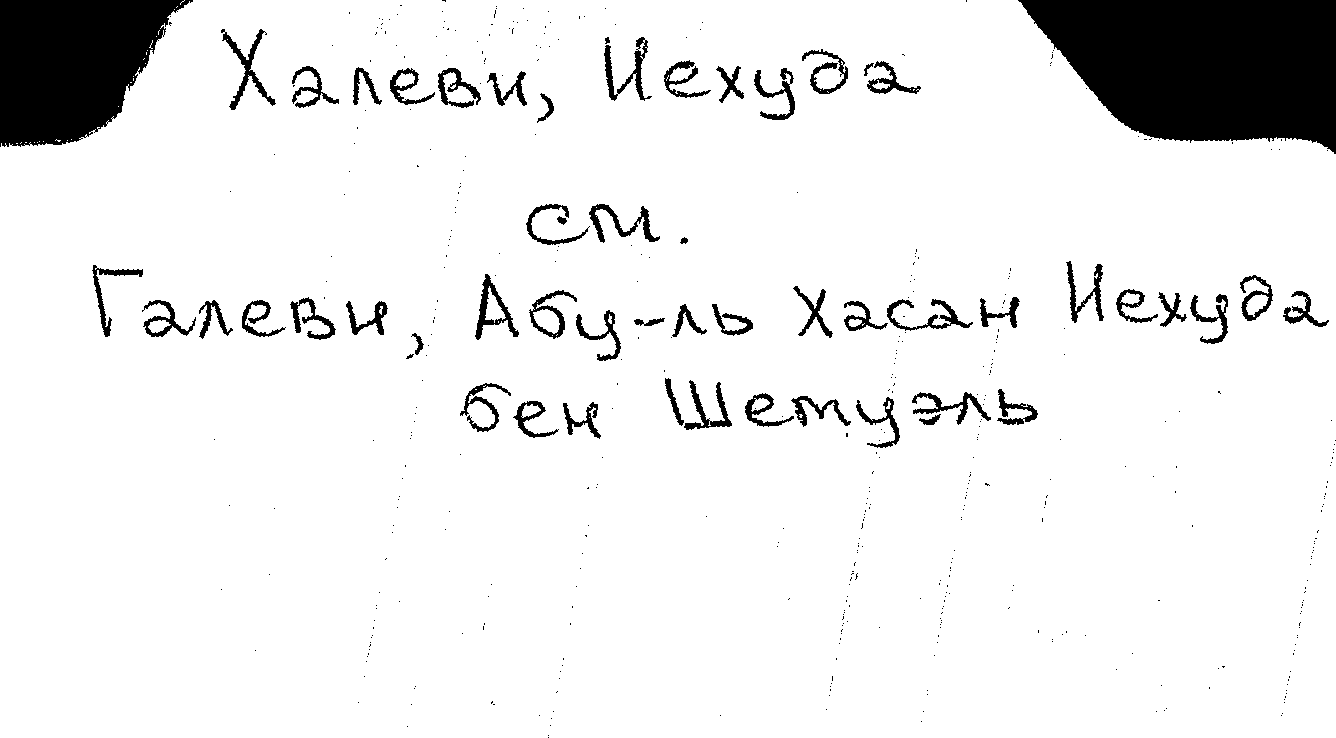 Халеви, Иехуда
см.
Галеви, Абу-ль Хасан Иехуда
бен Шемуэль